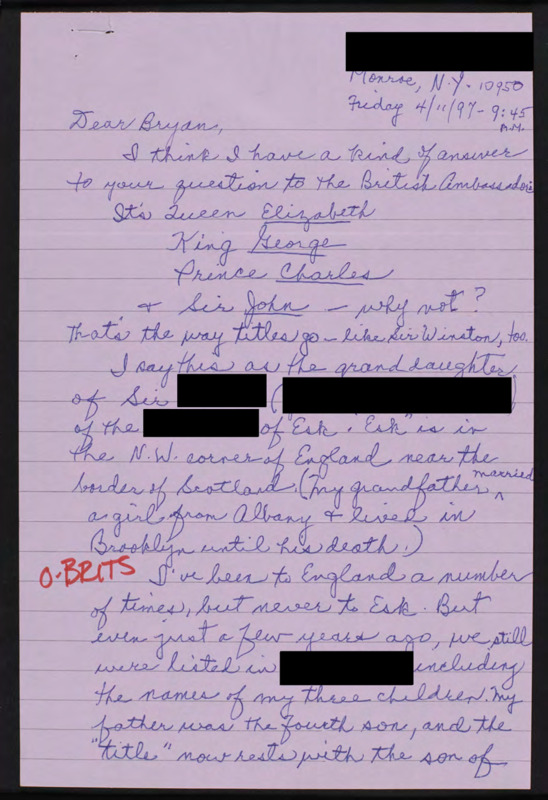 Monroe, N.Y. 10950
Friday 4/11/97 - 9:45
A.M.
Dear Bryan,
I think I have a kind of answer
to your question to the British Ambassador:
It's Queen Elizabeth
King George
Prince Charles
& Sir John - why not?
That's the way titles go - like Sir Winston, too.
I say this as the granddaughter
of Sir (
of the of Esk. "Esk" is in
the N.W. corner of England near the
border of Scotland. (My grandfather married
a girl from Albany & lived in
Brooklyn until his death.)
O-BRITS
I've been to England a number
of times, but never to Esk. But
even just a few years ago, we still
were listed in including
the names of my three children. My
father was the fourth son, and the
"title" now rests with the son of